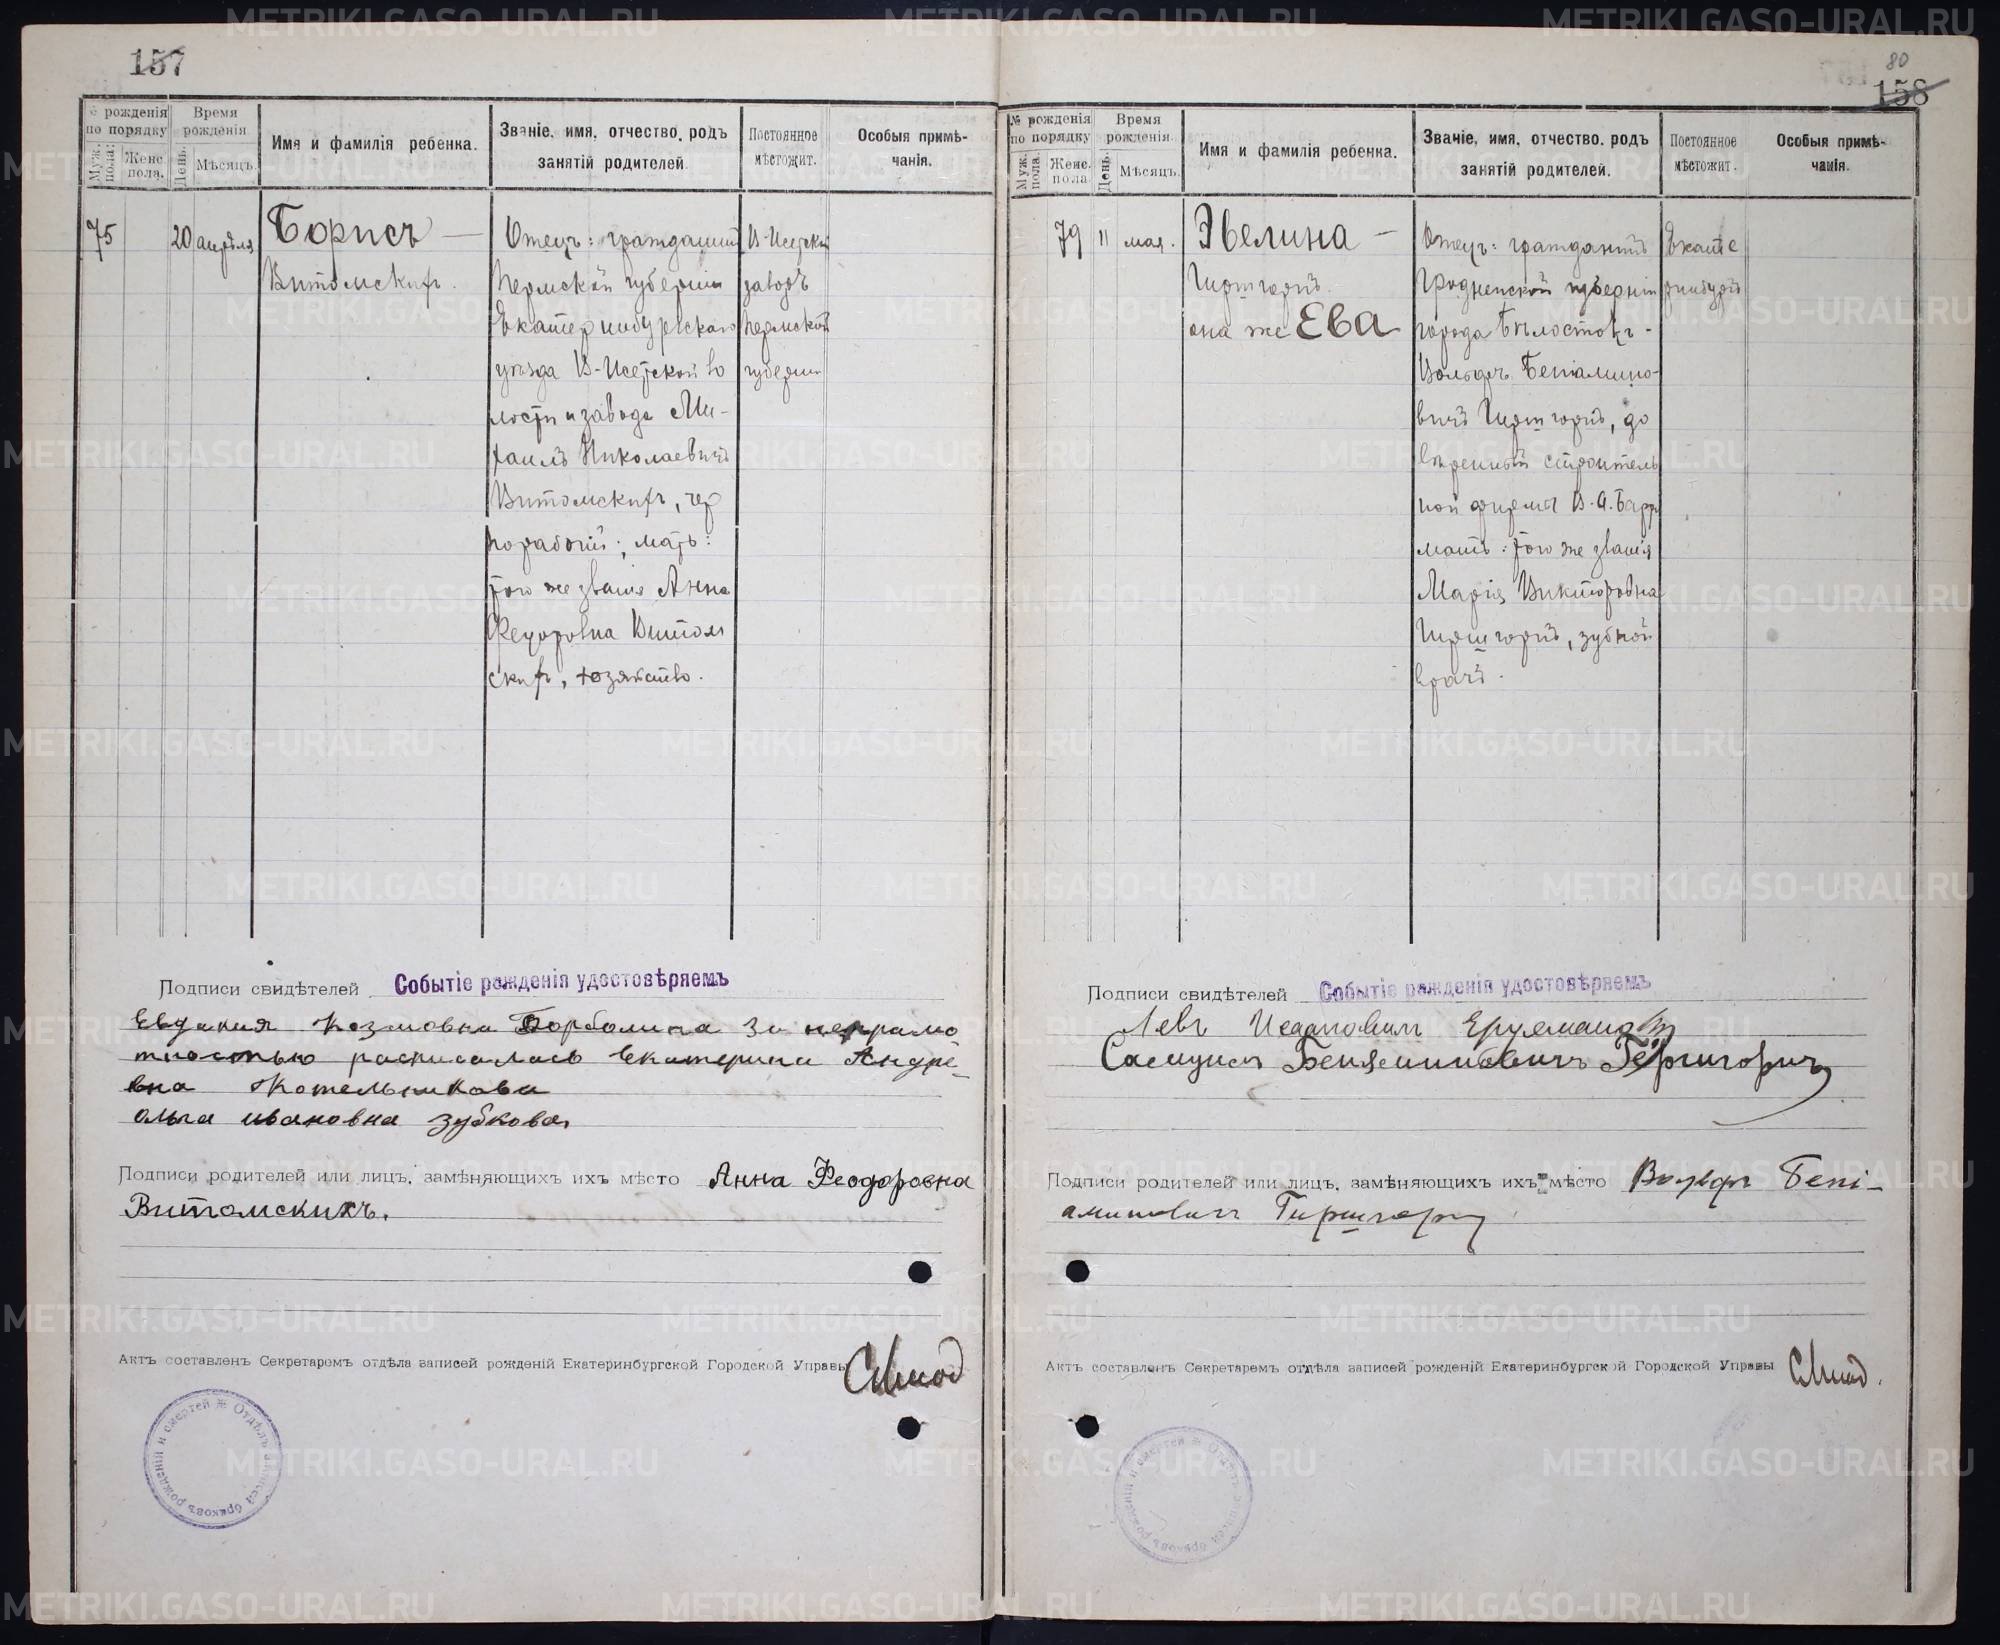 157
№ рожденія по порядку
Муж. пола.
Женс. пола.
Время рожденія
День.
Мѣсяцъ.
Имя и фамилія ребенка.
Званіе, имя, отчество, родъ
занятій родителей.
Постоянное
мѣстожит.
Особыя примѣ-
чанія.
75
20 апрѣля
Борисъ —
Витомскихъ.
Отецъ: гражданинъ
Пермской губерніи
Екатеринбургскаго
уѣзда В-Исетской во
лости и завода Ми-
хаилъ Николаевичъ
Витомскихъ, чер
норабочій; мать:
того же званія Анна
Федоровна Витом
скихъ, хозяйство.
В-Исетскій
заводъ
Пермской
губерніи
Подписи свидѣтелей
Событіе рожденія удостовѣряемъ
Евдакия Козмовна за неграмо
тностью расписалась Екатерина Андре-
вна Котельникова
ольга ивановна зубкова
Подписи родителей или лицъ, замѣняющихъ ихъ мѣсто Анна Феодоровна
Витомскихъ.
Актъ составленъ Секретаремъ отдѣла записей рожденій Екатеринбургской Городской Управы
Отдѣлъ записей браковъ рожденій и смертей
80
158
№ рожденія по порядку
Муж. пола.
Женс. пола
Время рожденія.
День.
Мѣсяцъ.
Имя и фамилія ребенка.
Званіе, имя, отчество, родъ
занятій родителей.
Постоянное
мѣстожит.
Особыя примѣ-
чанія.
79
11 мая.
Эвелина —
Гиршгорнъ.
она же Ева
Отецъ: гражданинъ
Гродненской губерніи
города Бѣлостокъ-
Вольфъ Беніамино-
вичъ Гиршгорнъ, до
вѣренный строитель
ной фирмы В. А.
мать: того же званія
Марія Викторовна
Гиршгорнъ, зубной
врачъ.
Екате
ринбургъ
Подписи свидѣтелей
Событіе рожденія удостовѣряемъ
Левъ
Самуилъ Беняминовичъ
Подписи родителей или лицъ, замѣняющихъ ихъ мѣсто Вульфъ Бені-
аминовичъ Гиршгорнъ
Актъ составленъ Секретаремъ отдѣла записей рожденій Екатеринбургской Городской Управы
Отдѣлъ записей браковъ рожденій и смертей
METRIKI.GASO-URAL.RU